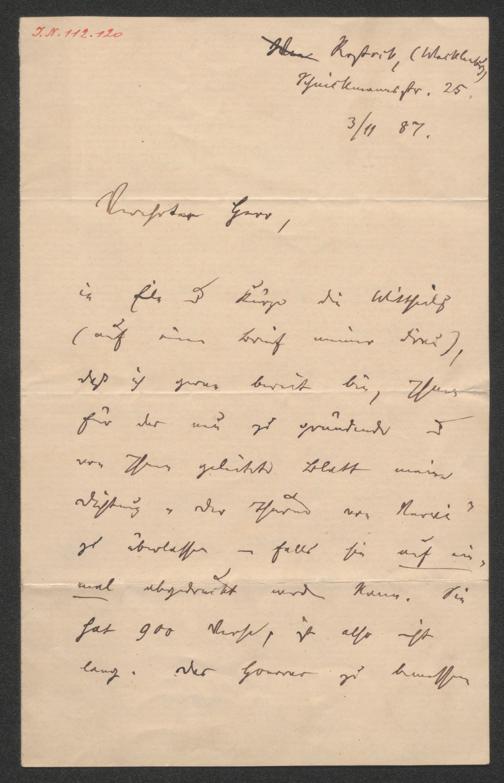 J.N. 112.120
Rostock, (Mecklenbg)
str. 25.
3/11 87.
Verehrter Herr,
in Eile u Kürze die Mittheilg
(auf einen Brief meiner Frau),
daß ich gern bereit bin, Ihnen
für das neu zu gründende u
von Ihnen geleitete Blatt meine
Dichtung „Der Thurm von"
zu überlassen – falls sie auf ein-
mal abgedruckt werden kann. Sie
hat 900 Verse, ist also nicht
lang. Das Honorar zu bemessen